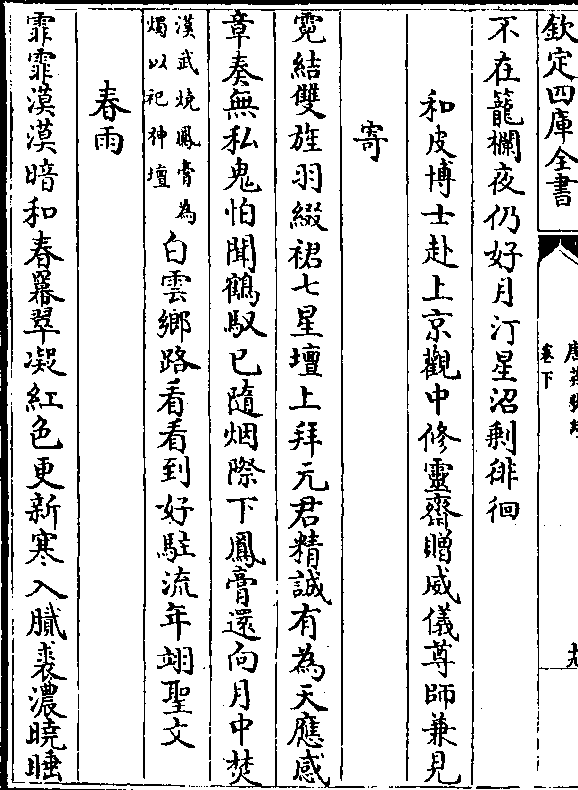 欽定四庫全書
卷下
不在籠欄夜仍好月汀星沼剩徘徊
和皮博士赴上京觀中修靈齋贈威儀尊師兼見
寄
霓結雙旌羽綴裙七星壇上拜元君精誠有為天應感
章奏無私鬼怕聞鶴馭已隨烟際下鳳膏還向月中焚
漢武燒鳳膏為
燭以祀神壇
白雲鄉路看看到好駐流年翊聖文
春雨
霏霏漠漠暗和春羃翠凝紅色更新寒入膩裘濃曉睡